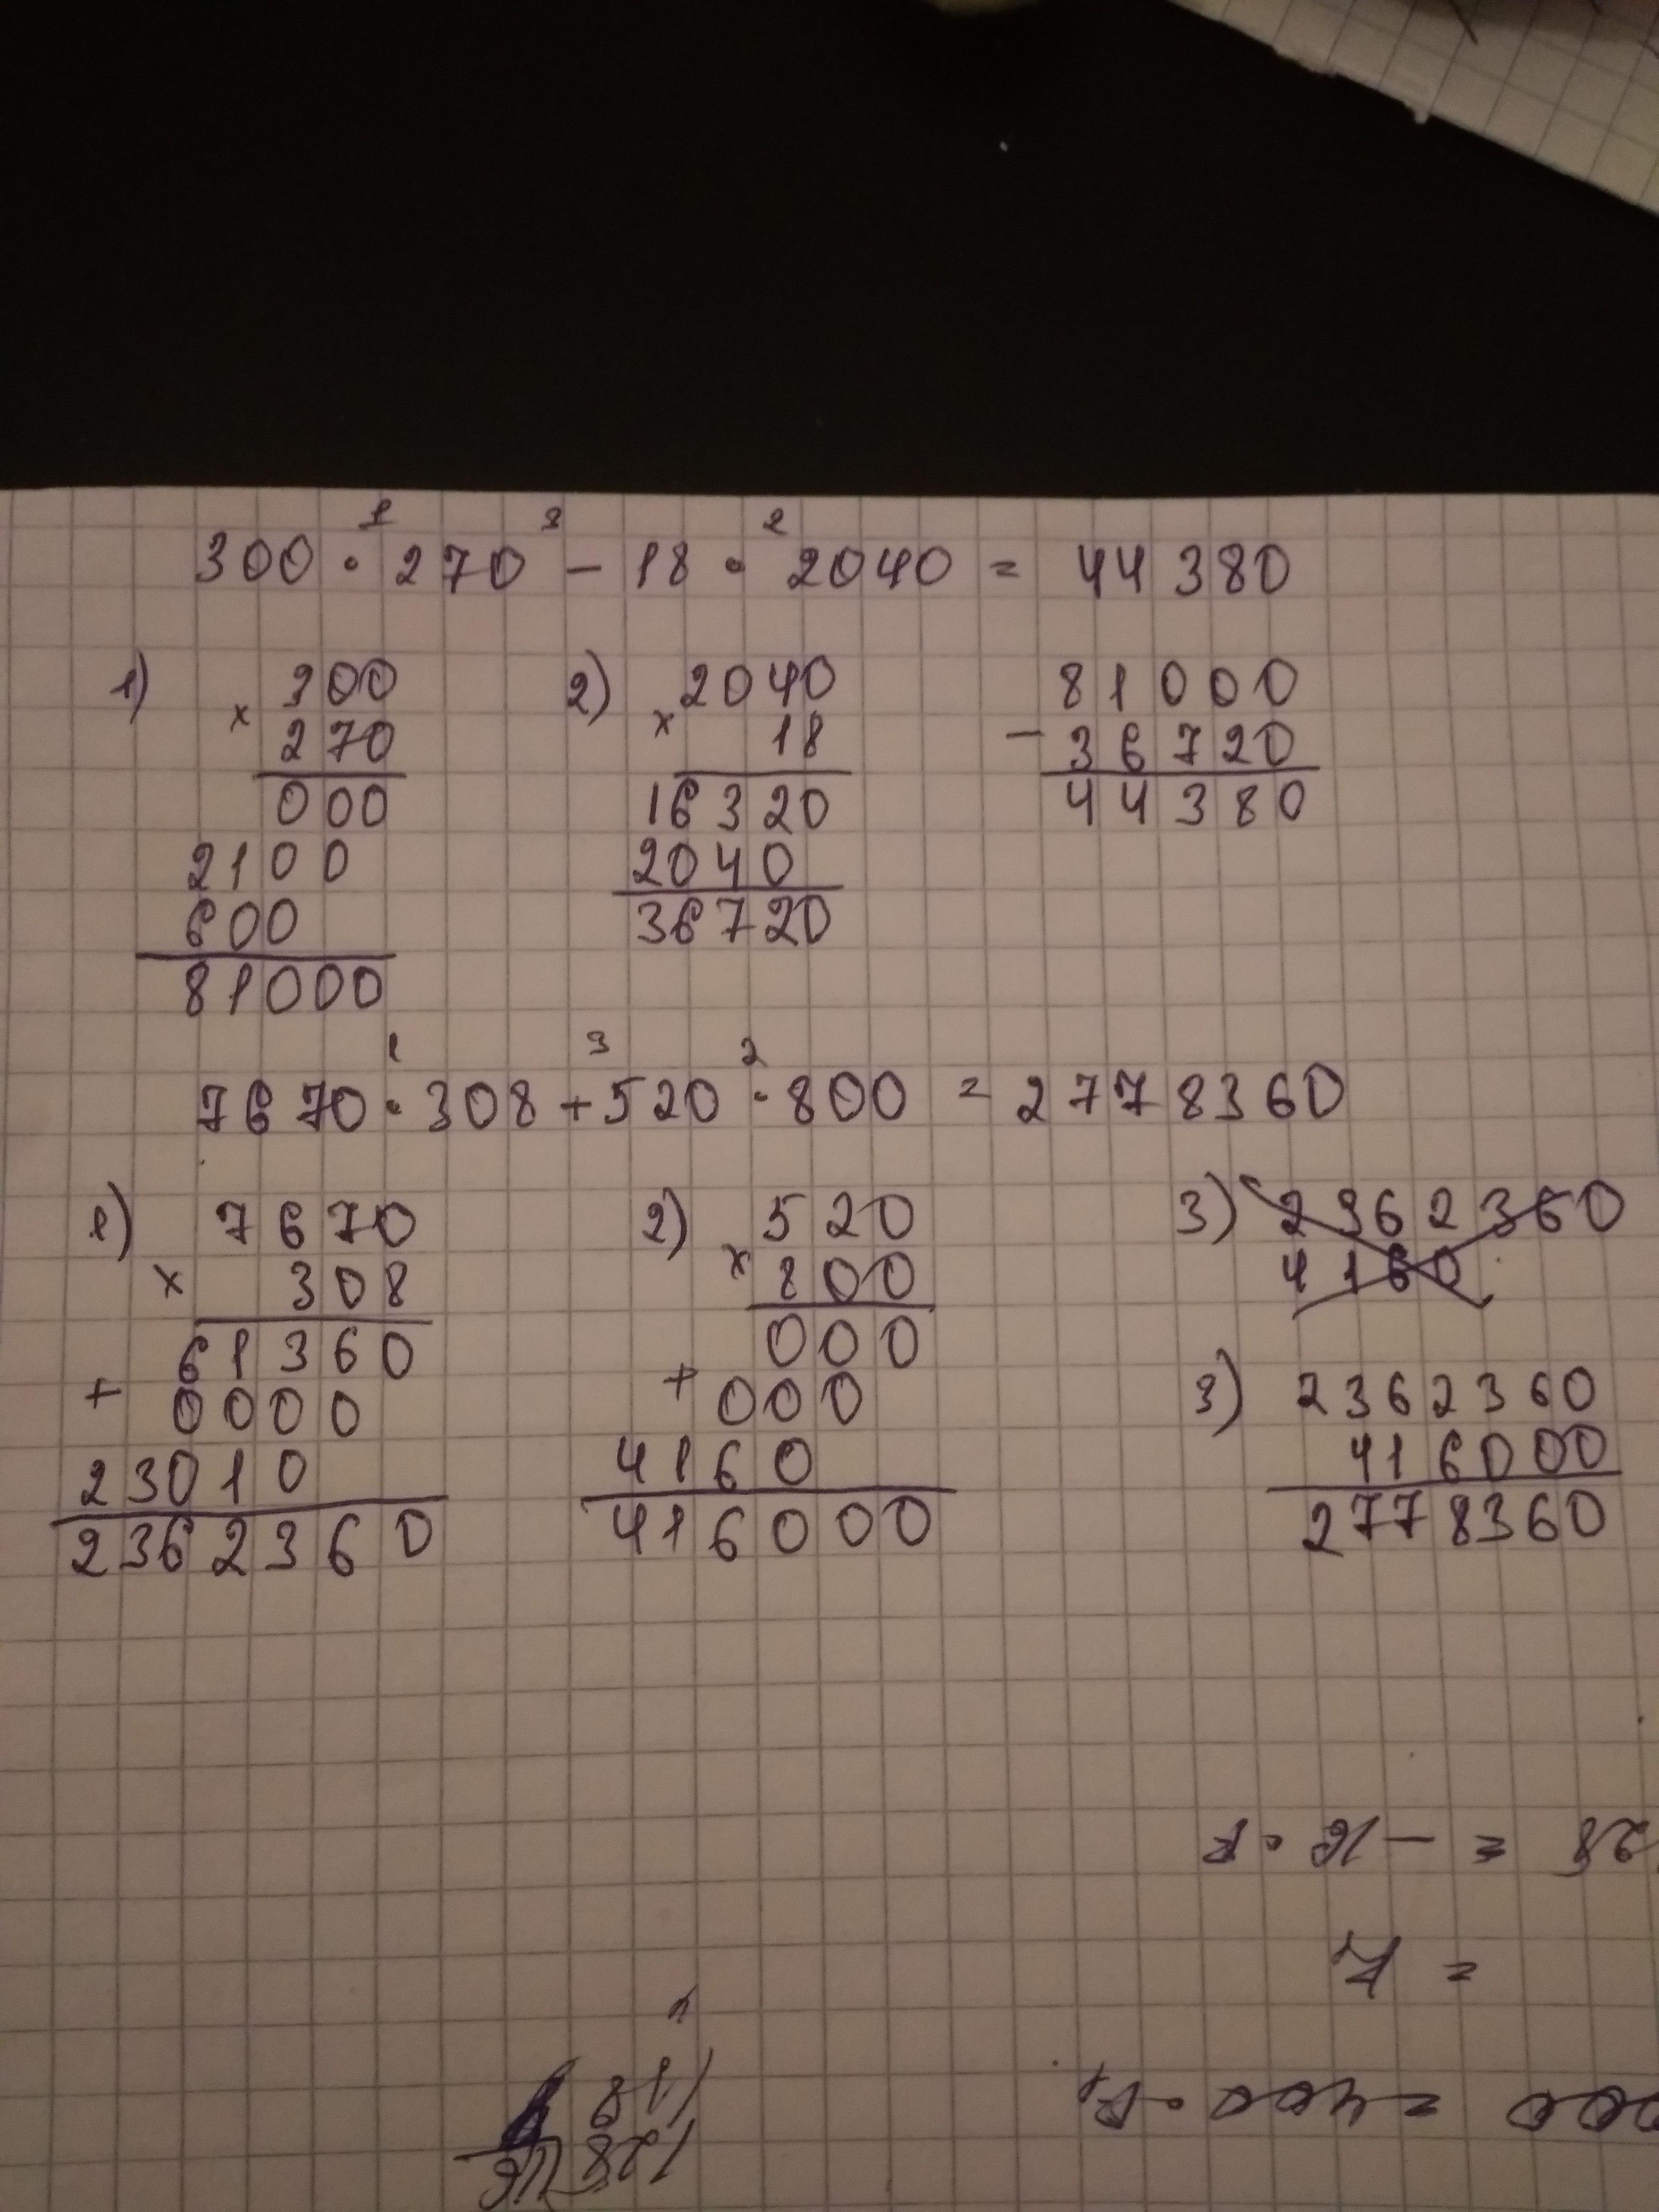 1 3 2
300 · 270 - 18 · 2040 = 44380
1) 300 2) 2040 81000
× 270 × 18 - 36720
000 16320 44380
2100 2040
600 36720
81000
1 3 2
7670 · 308 + 520 · 800 = 2778360
1) 7670 2) 520 3) 2362360
× 308 × 800 4160
61360 000 3) 2362360
+ 0000 + 000 416000
23010 4160 2778360
2362360 416000